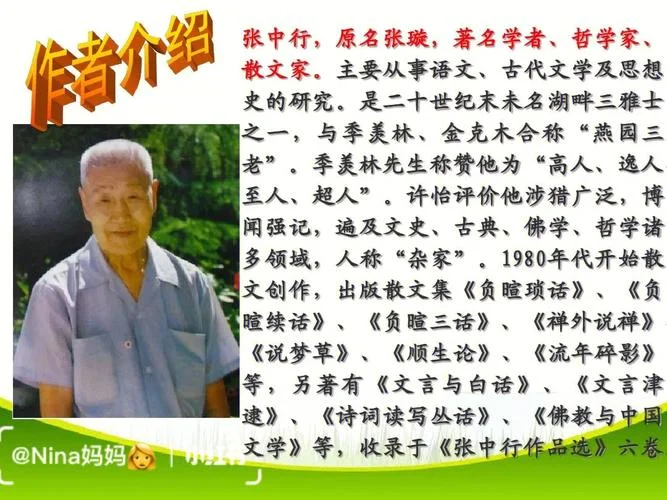 作者介绍
张中行，原名张璇，著名学者、哲学家、
散文家。主要从事语文、古代文学及思想
史的研究。是二十世纪末未名湖畔三雅士
之一，与季羡林、金克木合称“燕园三
老”。季羡林先生称赞他为“高人、逸人
至人、超人”。许怡评价他涉猎广泛，博
闻强记，遍及文史、古典、佛学、哲学诸
多领域，人称“杂家”。1980年代开始散
文创作，出版散文集《负暄琐话》、《负
暄续话》、《负暄三话》、《禅外说禅》
《说梦草》、《顺生论》、《流年碎影》
等，另著有《文言与白话》、《文言津
逮》、《诗词读写丛话》、《佛教与中国
文学》等，收录于《张中行作品选》六卷
@Nina妈妈